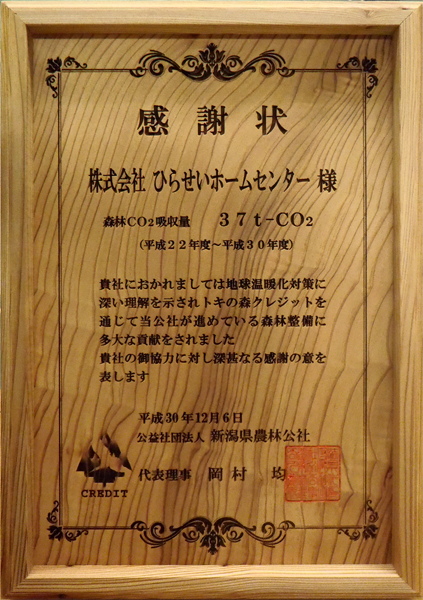 感謝状
株式会社 ひらせいホームセンター 様
森林CO2吸収量 37t-CO2
(平成22年度~平成30年度)
貴社におかれましては地球温暖化対策に
深い理解を示されトキの森クレジットを
通じて当公社が進めている森林整備に
多大な貢献をされました
貴社の御協力に対し深甚なる感謝の意を
表します
平成30年12月6日
公益社団法人 新潟県農林公社
代表理事 岡村 均
CREDIT